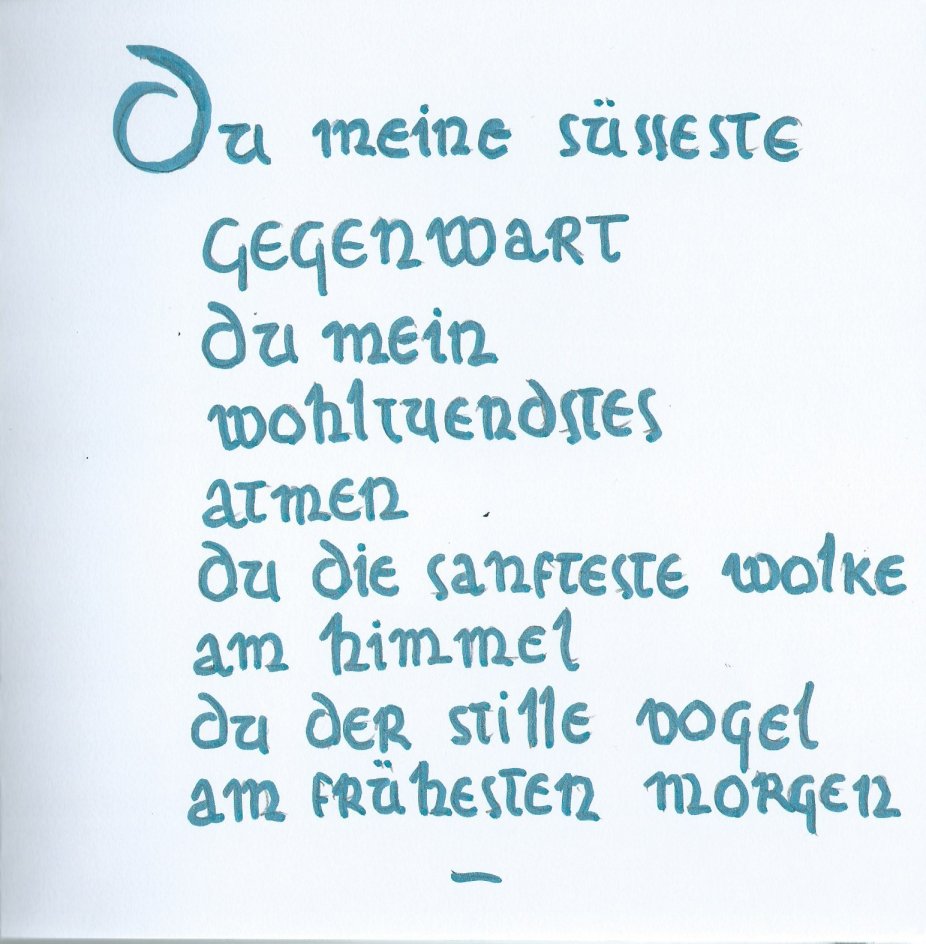 Du meine süsseste
gegenwart
du mein
wohltuendstes
atmen
du die sanfteste wolke
am himmel
du der stille vogel
am frühesten morgen
–